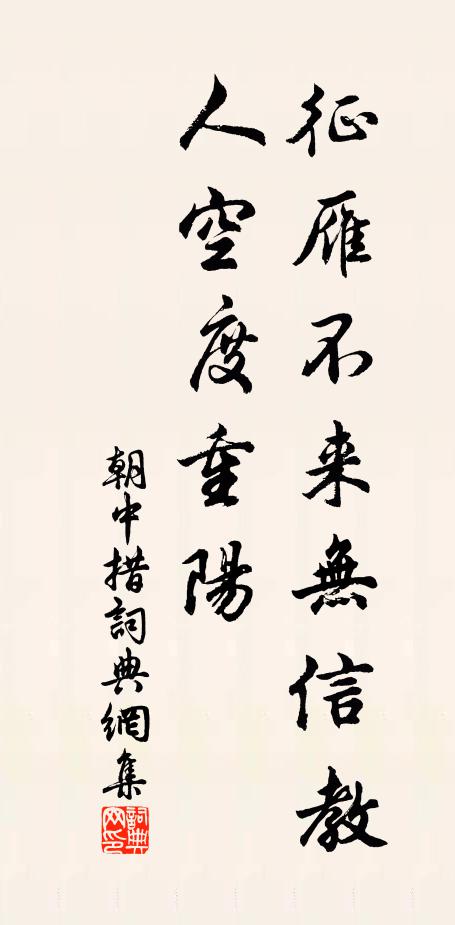 征雁不来無信教
人空度重陽
朝中措詞典網集
詞典網印